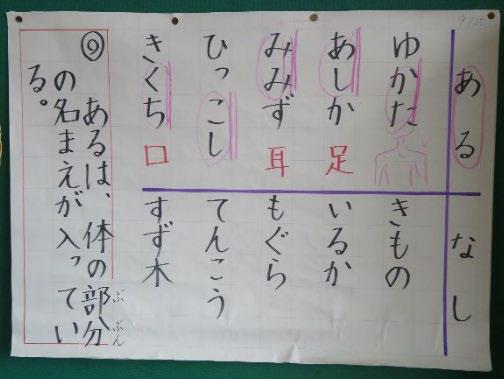 9/25
ある なし
ゆかた きもの
あしか 足 いるか
みみず 耳 もぐら
ひっこし てんこう
きくち 口 すず木
◎ あるは、体の部分
ぶ ぶん
の名まえが入ってい
る。